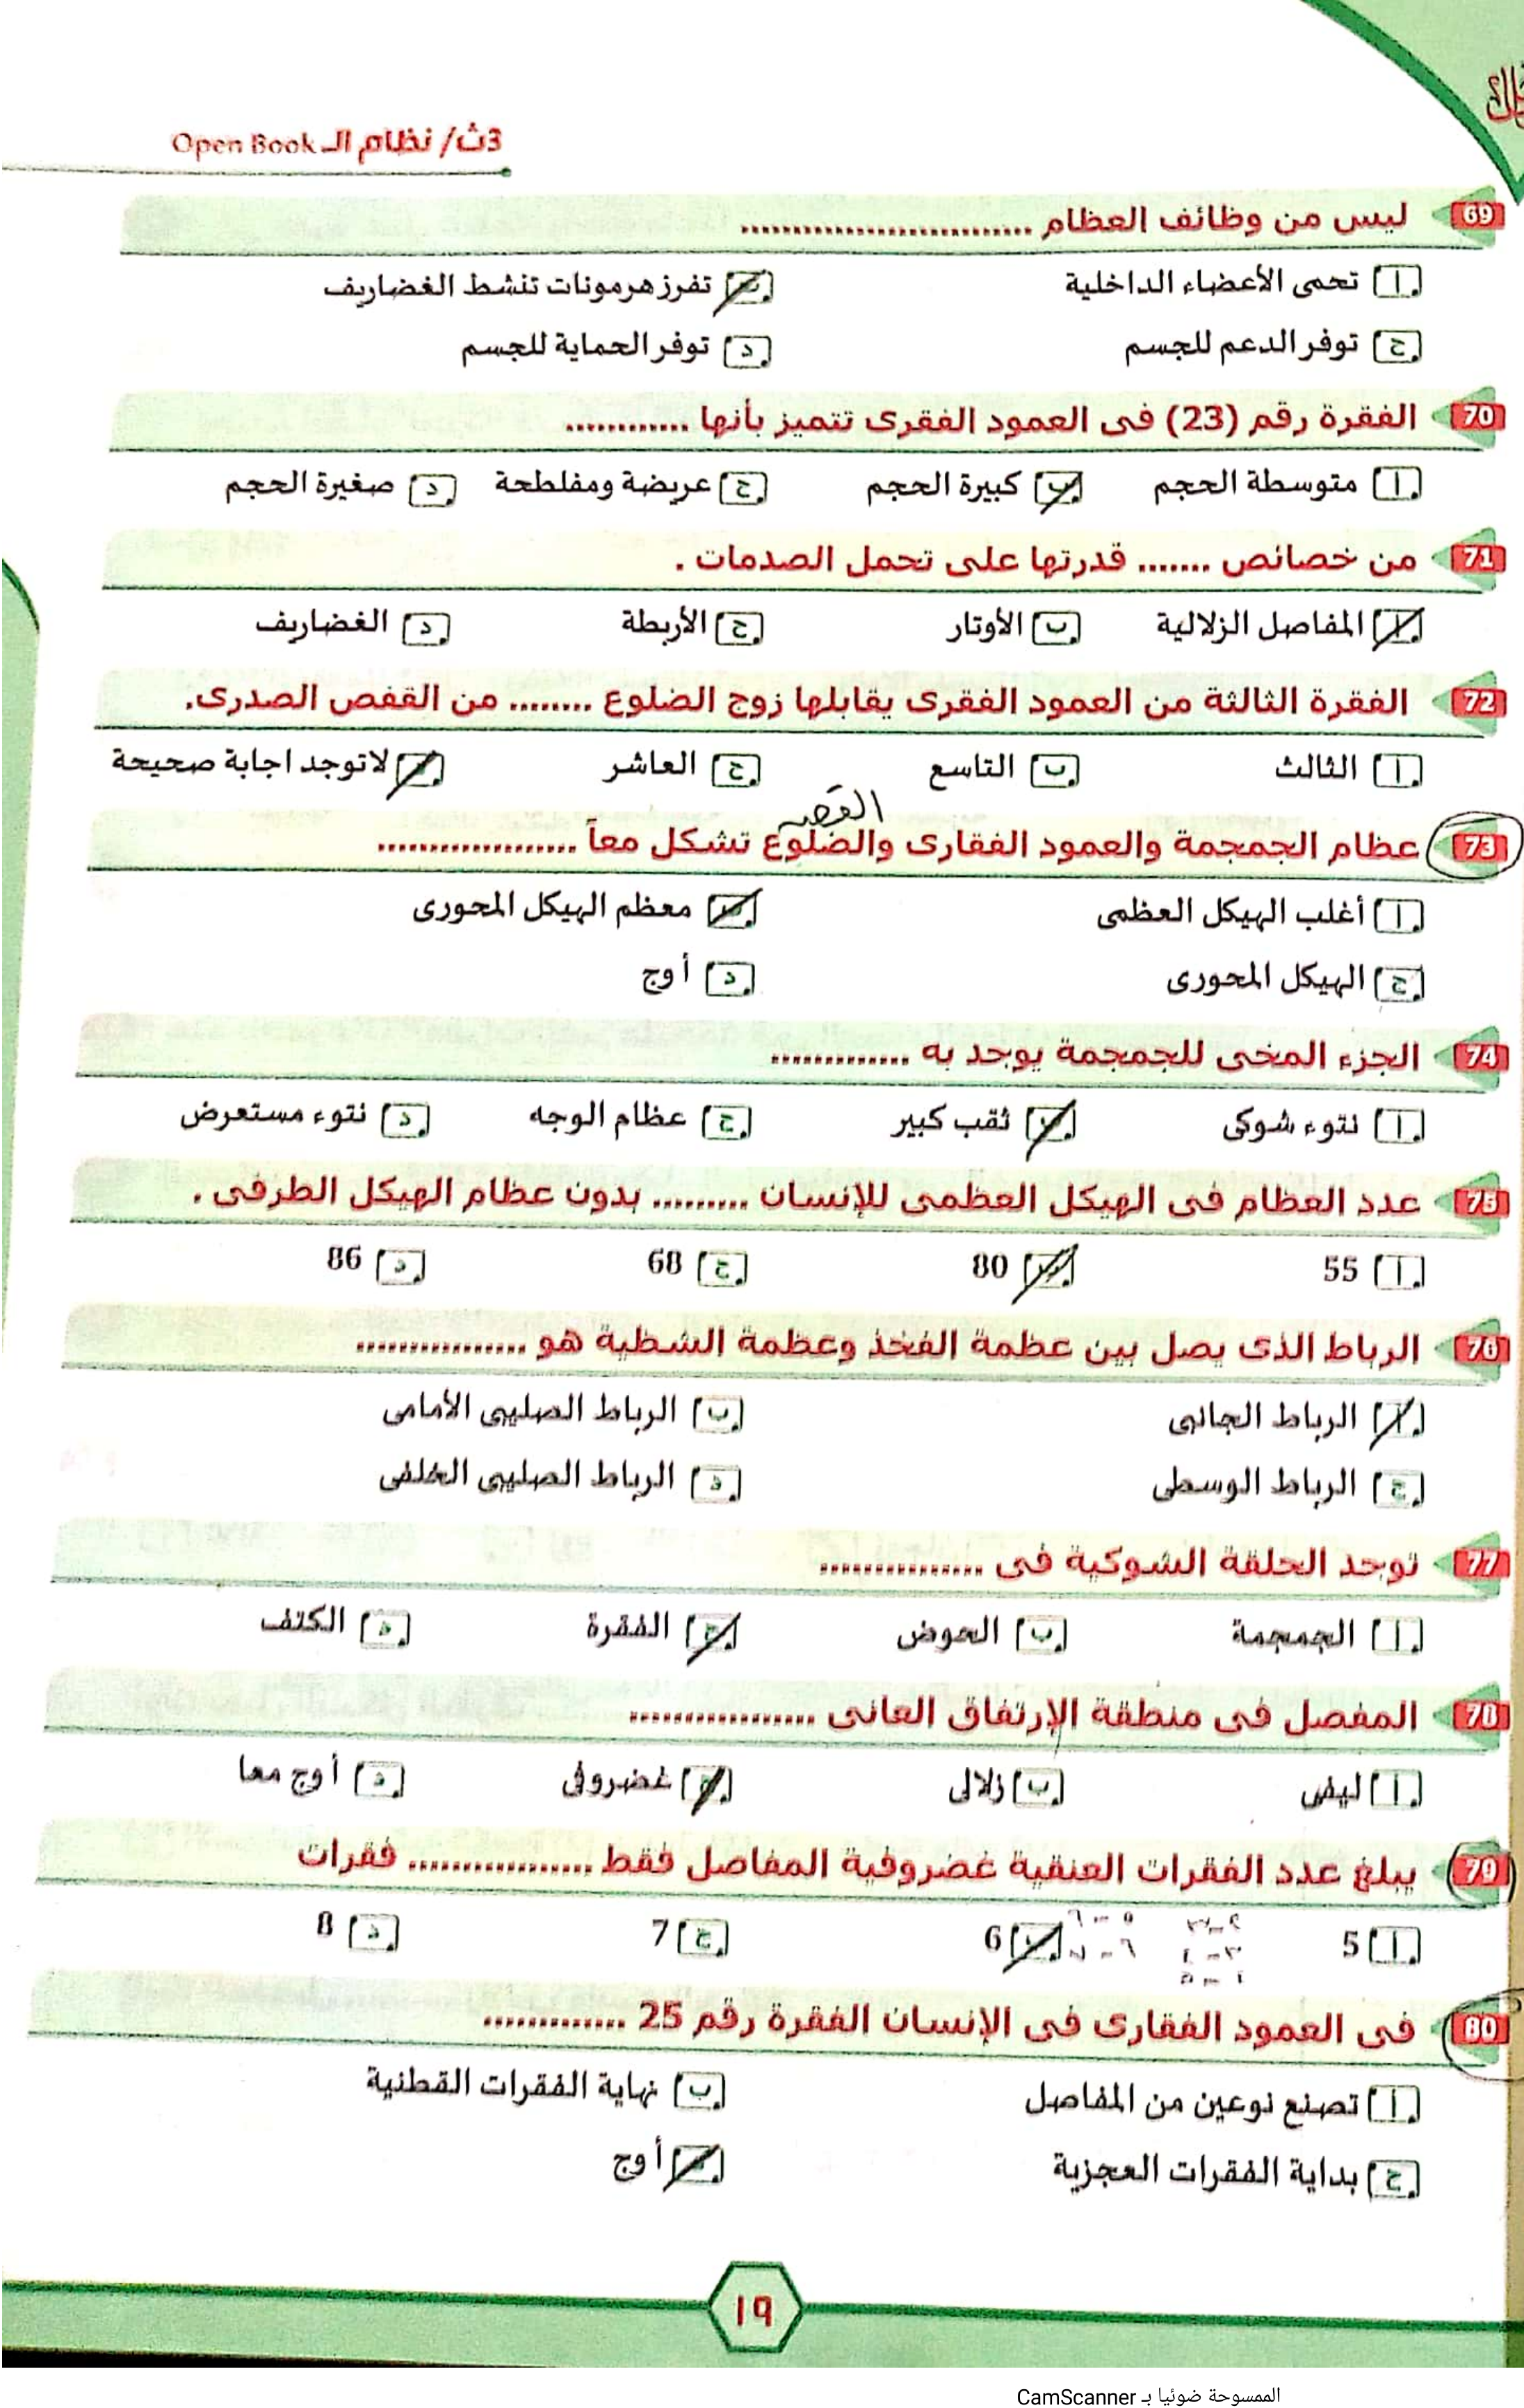 3ث/ نظام الـ Open Book
69 ليس من وظائف العظام ............................
أ تحمى الأعضاء الداخلية ب تفرز هرمونات تنشط الغضاريف
ج توفر الدعم للجسم د توفر الحماية للجسم
70 الفقرة رقم (23) فى العمود الفقرى تتميز بأنها ............
أ متوسطة الحجم ب كبيرة الحجم ج عريضة ومفلطحة د صغيرة الحجم
71 من خصائص ....... قدرتها على تحمل الصدمات .
أ المفاصل الزلالية ب الأوتار ج الأربطة د الغضاريف
72 الفقرة الثالثة من العمود الفقرى يقابلها زوج الضلوع ........ من القفص الصدرى.
أ الثالث ب التاسع ج العاشر د لاتوجد اجابة صحيحة
القص
73 عظام الجمجمة والعمود الفقارى والضلوع تشكل معاً ...................
أ أغلب الهيكل العظمى ب معظم الهيكل المحورى
ج الهيكل المحورى د أ وج
74 الجزء المخى للجمجمة يوجد به .............
أ نتوء شوكى ب ثقب كبير ج عظام الوجه د نتوء مستعرض
75 عدد العظام فى الهيكل العظمى للإنسان ......... بدون عظام الهيكل الطرفى .
أ 55 ب 80 ج 68 د 86
76 الرباط الذى يصل بين عظمة الفخذ وعظمة الشظية هو ................
أ الرباط الجانبى ب الرباط الصليبى الأمامى
ج الرباط الوسطى د الرباط الصليبى الخلفى
77 توجد الحلقة الشوكية فى ................
أ الجمجمة ب الحوض ج الفقرة د الكتف
78 المفصل فى منطقة الإرتفاق العانى ..................
أ ليفى ب زلالى ج غضروفى د أ وج معا
79 يبلغ عدد الفقرات العنقية غضروفية المفاصل فقط .................. فقرات
أ 5 ب 6 ج 7 د 8
٢-٣ ٥-٦
٣-٤ ٦-٧
٤-٥
80 فى العمود الفقارى فى الإنسان الفقرة رقم 25 .............
أ تصنع نوعين من المفاصل ب نهاية الفقرات القطنية
ج بداية الفقرات العجزية د أ وج
١٩
الممسوحة ضوئيا بـ CamScanner